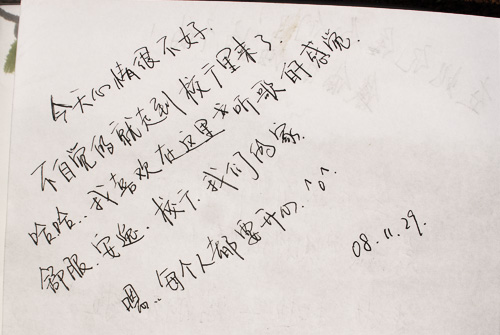 今天心情很不好.
不自觉的就走到校广里来了.
哈哈..我喜欢在这里 听歌的感觉.
舒服.安逸.校广.我们的家.
嗯..每个人都要开心.^o^.
08.11.29.